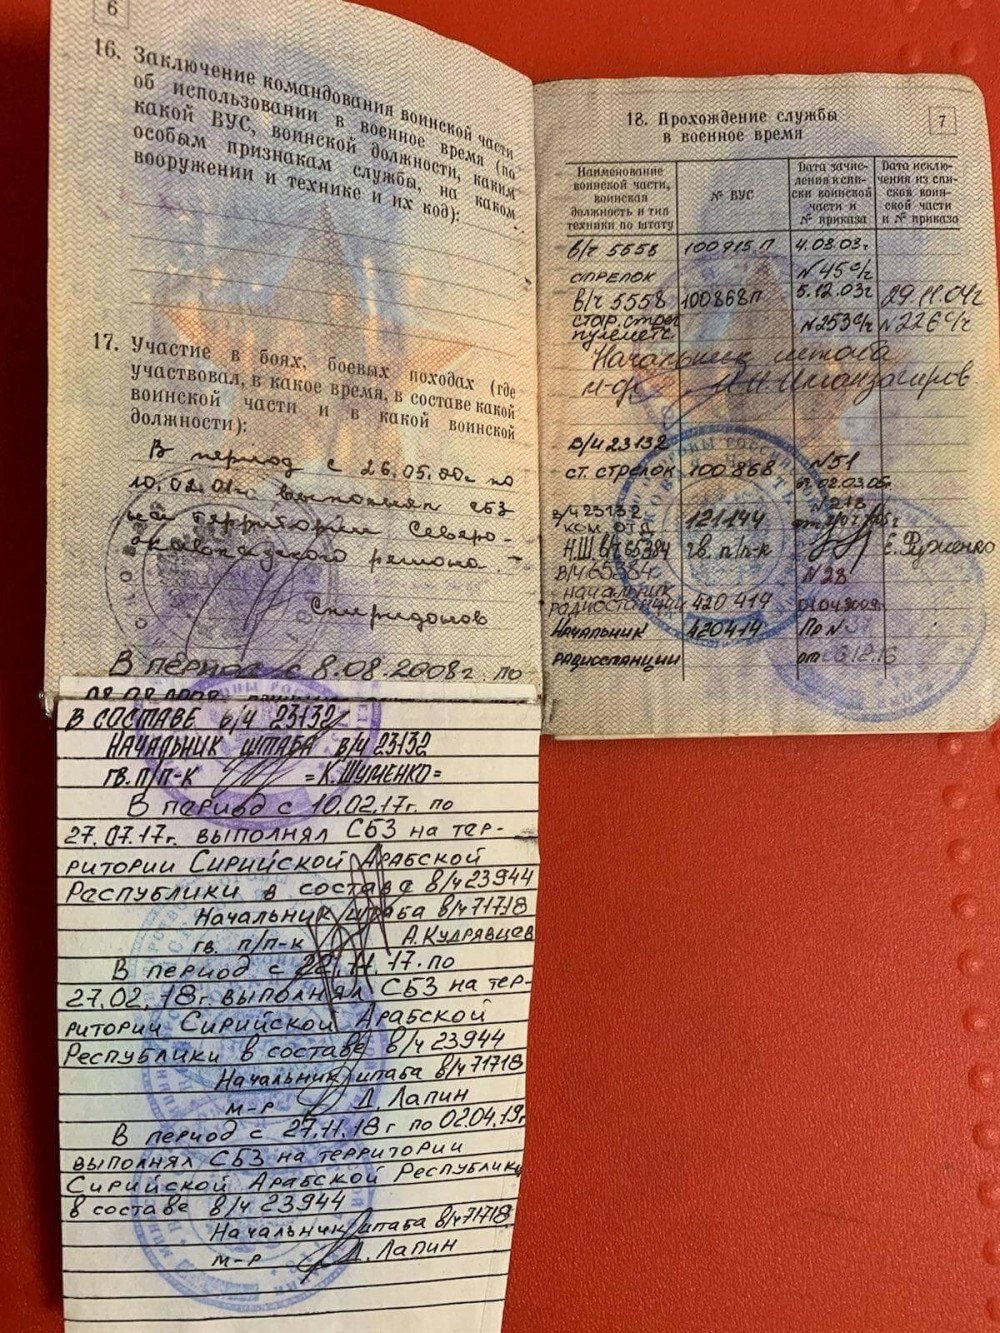 6
16. Заключение командования воинской части
об использовании в военное время (по
какой ВУС, воинской должности, каким
особым признакам службы, на каком
вооружении и технике и их код):
17. Участие в боях, боевых походах (где
участвовал, в какое время, в составе какой
воинской части и в какой воинской
должности):
В период с 26.05.00г по
10.02.01г выполнял СБЗ
на территории Северо-
кавказского региона.
Спиридонов
В период с 8.08.2008г. по
В СОСТАВЕ в/ч 23132
НАЧАЛЬНИК ШТАБА в/ч 23132
гв. п/п-к =К. ШУМЕНКО=
В период с 10.02.17г. по
27.07.17г. выполнял СБЗ на тер-
ритории Сирийской Арабской
Республики в составе в/ч 23944
Начальник штаба в/ч 71718
гв. п/п-к А. Кудрявцев
В период с 22.11.17. по
27.02.18г. выполнял СБЗ на тер-
ритории Сирийской Арабской
Республики в составе в/ч 23944
Начальник штаба в/ч 71718
м-р Д. Лапин
В период с 27.11.18г по 02.04.19г
выполнял СБЗ на территории
Сирийской Арабской Республики
в составе в/ч 23944
Начальник штаба в/ч 71718
м-р Д. Лапин
7
18. Прохождение службы
в военное время
Наименование воинской части, воинская должность и тип техники по штату
№ ВУС
Дата зачисления в списки воинской части и № приказа
Дата исключения из списков воинской части и № приказа
в/ч 5558 100915 П 4.08.03г
СТРЕЛОК №45с/ч
в/ч 5558 100868П 5.12.03г 29.11.04г
стар. стре №253с/ч №226с/ч
пулеметч
Начальник штаба
м-р
в/ч 23132 №51
ст. стрелок 100868 от 02.03.05г
в/ч 23132 №218
ком. отд. 121144
Н.Ш в/ч 65384 гв. п/п-к
в/ч 65384 №28
начальник
радиостанции 420414 01.04.2009г
Начальник 420414 Пр №
радиостанции от